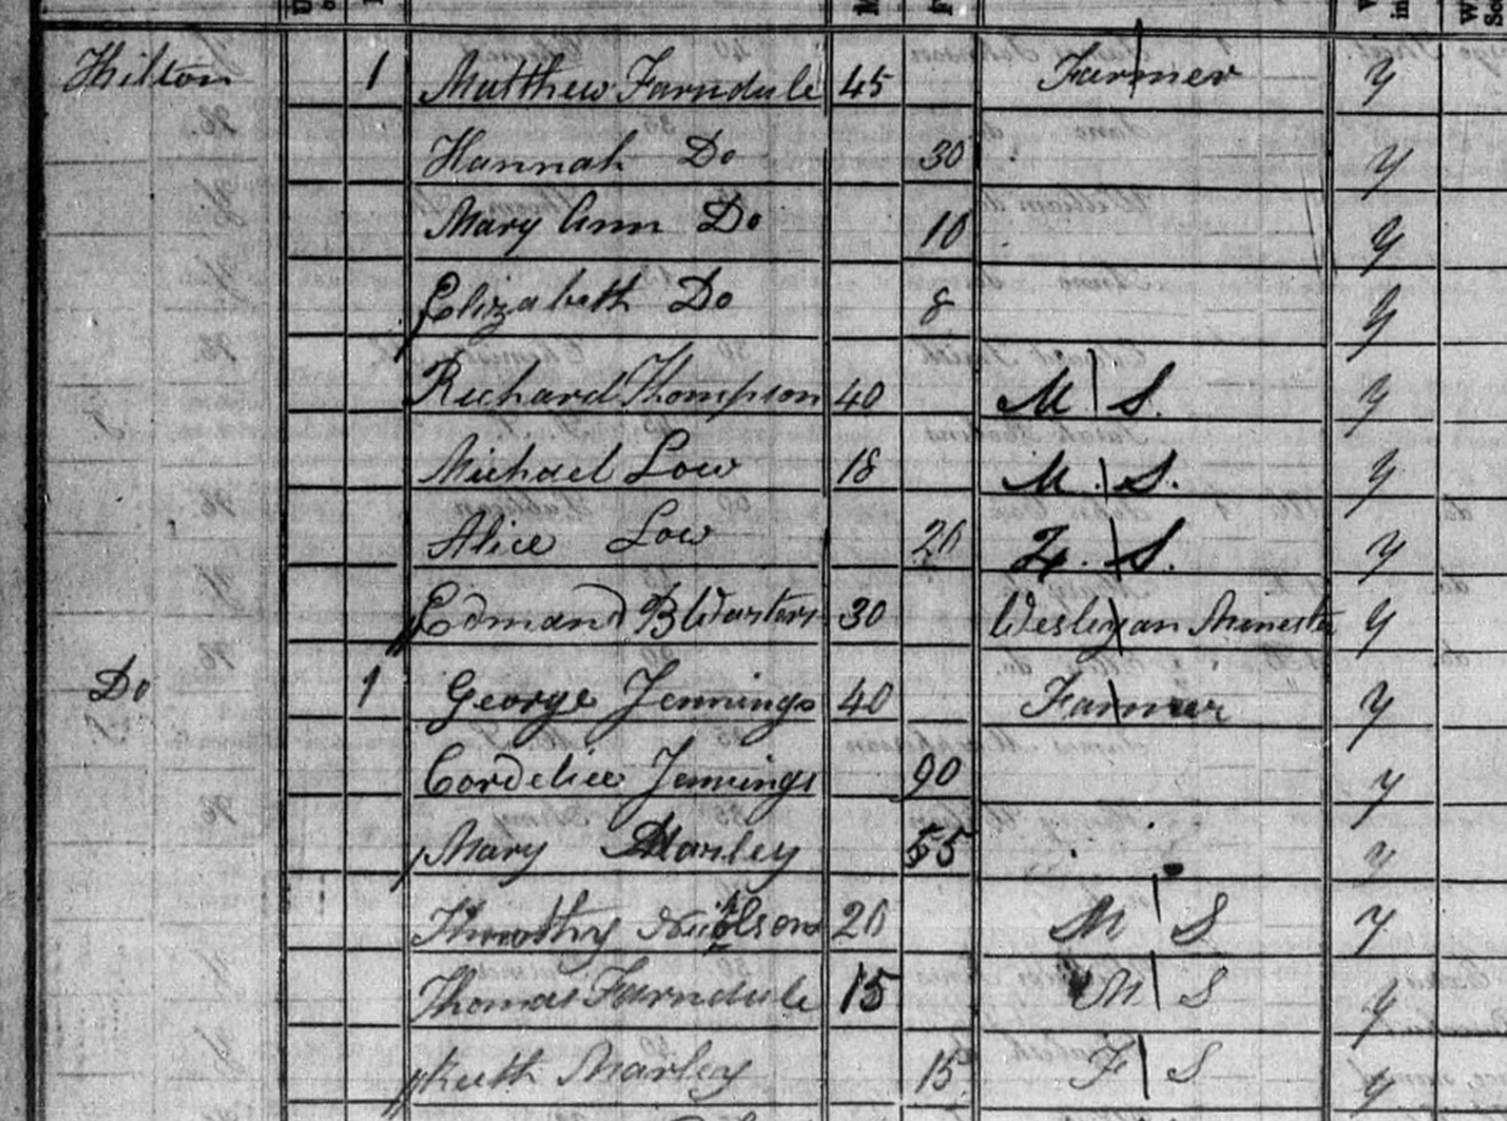 Hilton 1 Matthew Farndale 45 Farmer y
Hannah Do 30 y
Mary Ann Do 10 y
Elizabeth Do 8 y
Richard Thompson 40 M. S. y
Michael Low 18 M. S. y
Alice Low 20 F. S. y
Edmand B Warters 30 Wesleyan y
Do 1 George Jennings 40 Farmer y
Cordelia Jennings 90 y
Mary Marley 55 y
Timothy 20 M S y
Thomas Farndale 15 M S y
Ruth Marley 15 F S y